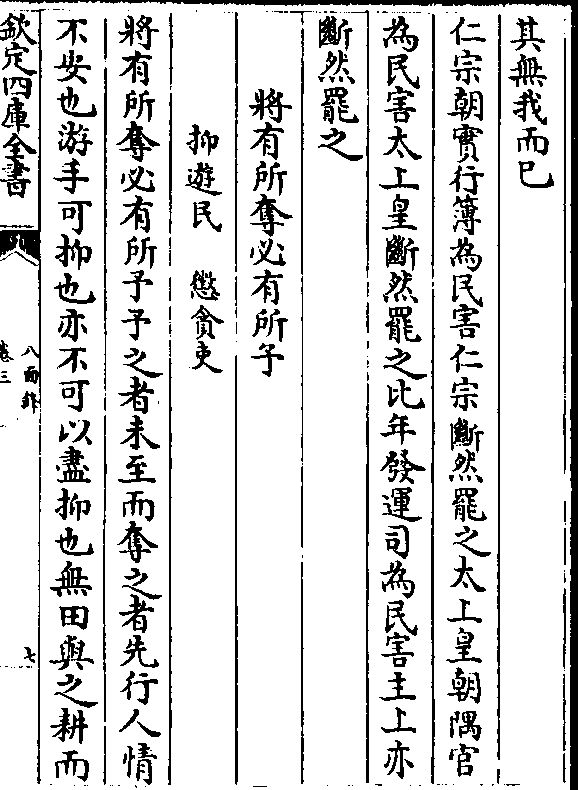 其無我而已
仁宗朝實行簿為民害仁宗斷然罷之太上皇朝隅官
為民害太上皇斷然罷之比年發運司為民害主上亦
斷然罷之
將有所奪必有所予
抑遊民　懲貪吏
將有所奪必有所予予之者未至而奪之者先行人情
不安也游手可抑也亦不可以盡抑也無田與之耕而
欽定四庫全書
八面鋒
卷三
七